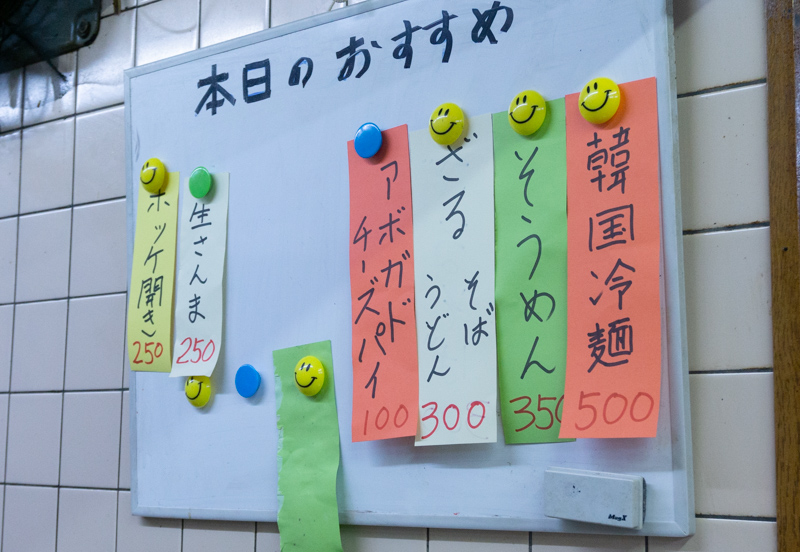 本日のおすすめ
韓国冷麺
500
そうめん
350
ざる そば
うどん
300
アボガド
チーズパイ
100
生さんま
250
ホッケ開き
250
MagX